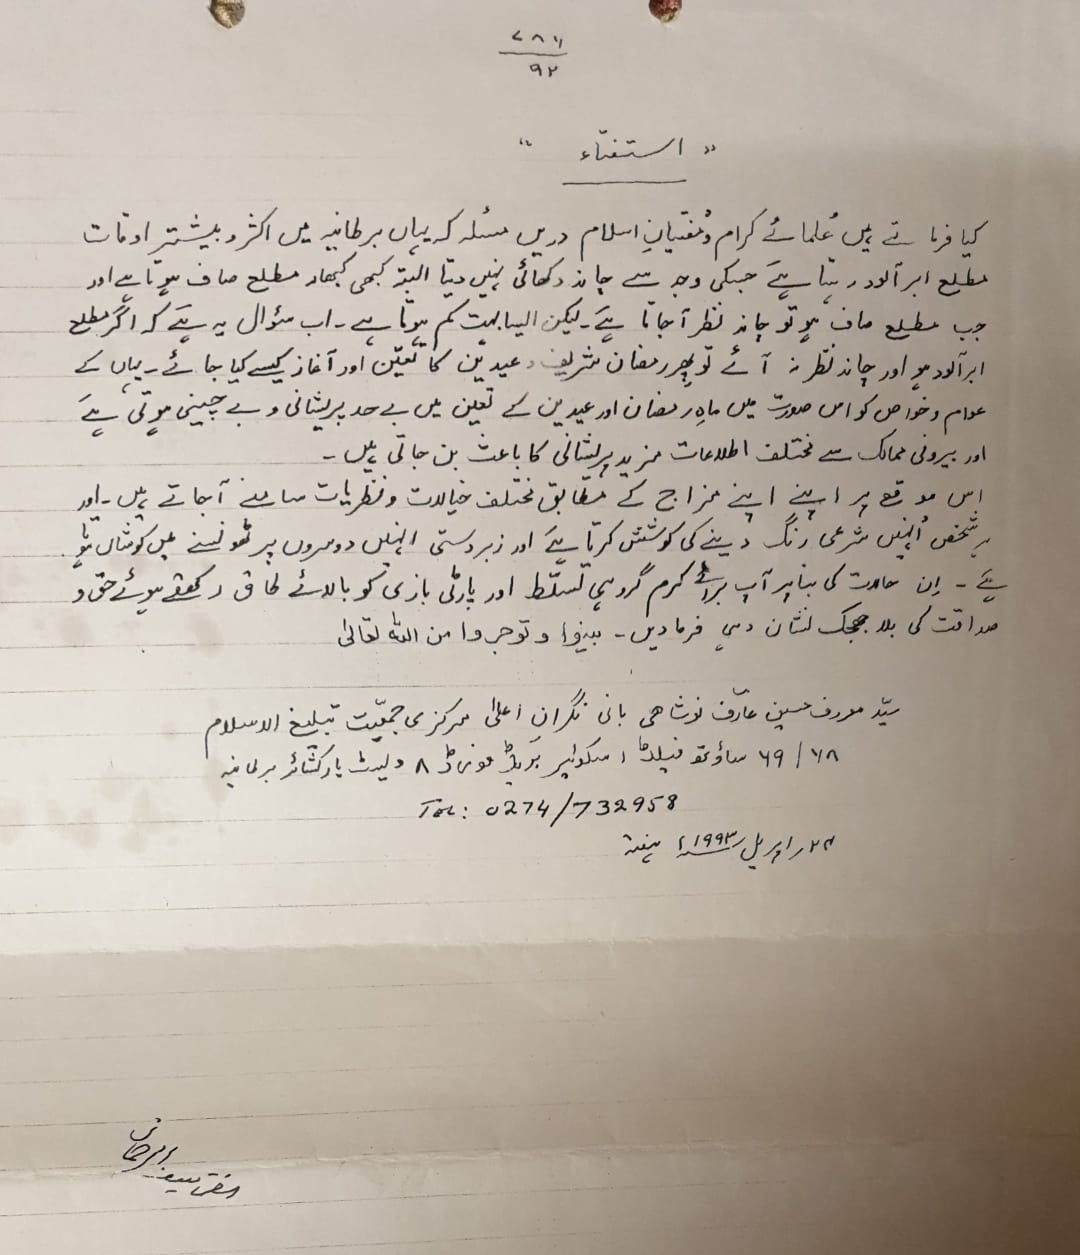 ۷۸۶
۹۲
" استفتاء "
کیا فرماتے ہیں عُلمائے کرام و مُفتیانِ اسلام دریں مسئلہ کہ یہاں برطانیہ میں اکثر و بیشتر اوقات
مطلع ابر آلود رہتا ہے جسکی وجہ سے چاند دکھائی نہیں دیتا البتہ کبھی کبھار مطلع صاف ہوتا ہے اور
جب مطلع صاف ہو تو چاند نظر آجاتا ہے۔ لیکن ایسا بہت کم ہوتا ہے۔ اب سئوال یہ ہے کہ اگر مطلع
ابر آلود ہو اور چاند نظر نہ آئے تو پھر رمضان شریف و عیدین کا تعیّن اور آغاز کیسے کیا جائے۔ یہاں کے
عوام و خواص کو اس صورت میں ماہِ رمضان اور عیدین کے تعین میں بے حد پریشانی و بے چینی ہوتی ہے
اور بیرونی ممالک سے مختلف اطلاعات مزید پریشانی کا باعث بن جاتی ہیں۔
اس موقع پر اپنے اپنے مزاج کے مطابق مختلف خیالات و نظریات سامنے آجاتے ہیں۔ اور
ہر شخص اُنہیں شرعی رنگ دینے کی کوشش کرتا ہے اور زبردستی انہیں دوسروں پر ٹھونسنے میں کوشاں ہوتا
ہے۔ اِن حالات کی بنا پر آپ برائے کرم گروہی تسلّط اور پارٹی بازی کو بالائے طاق رکھتے ہوئے حق و
صداقت کی بلا جھجک نشان دہی فرمادیں۔ بینوا و توجروا من اللہ تعالیٰ
سیّد معروف حسین عارف نوشاہی بانی نگرانِ اعلیٰ مرکزی جمعیّت تبلیغ الاسلام
۶۸/۶۹ ساؤتھ فیلڈ اسکوائیر بریڈ فورڈ ۸ ویسٹ یارکشائر برطانیہ
Tel: 0274/732958
۲۴ر اپریل ۱۹۹۳ء ہفتہ